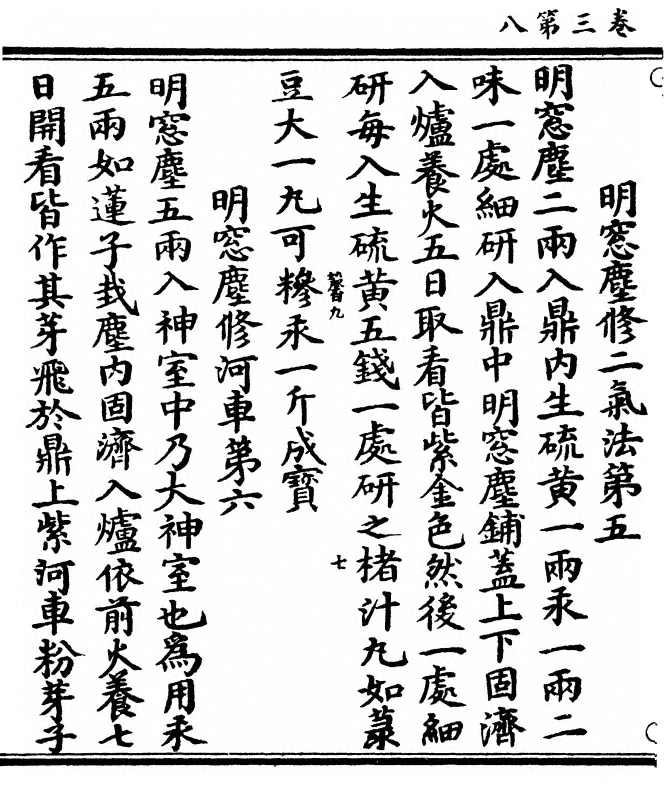 卷三第八
明窓塵修二氣法第五
明窓塵二兩入鼎内生硫黄一兩汞一兩二
味一處細研入鼎中明窓塵鋪蓋上下固濟
入爐養火五日取看皆紫金色然後一處細
研每入生硫黄五錢一處研之楮汁丸如菉
豆大一丸可糝汞一斤成寳
七
明窓塵修河車第六
明窓塵五兩入神室中乃大神室也爲用汞
五兩如蓮子栽塵内固濟入爐依前火養七
日開看皆作其芽飛於鼎上紫河車粉芽子